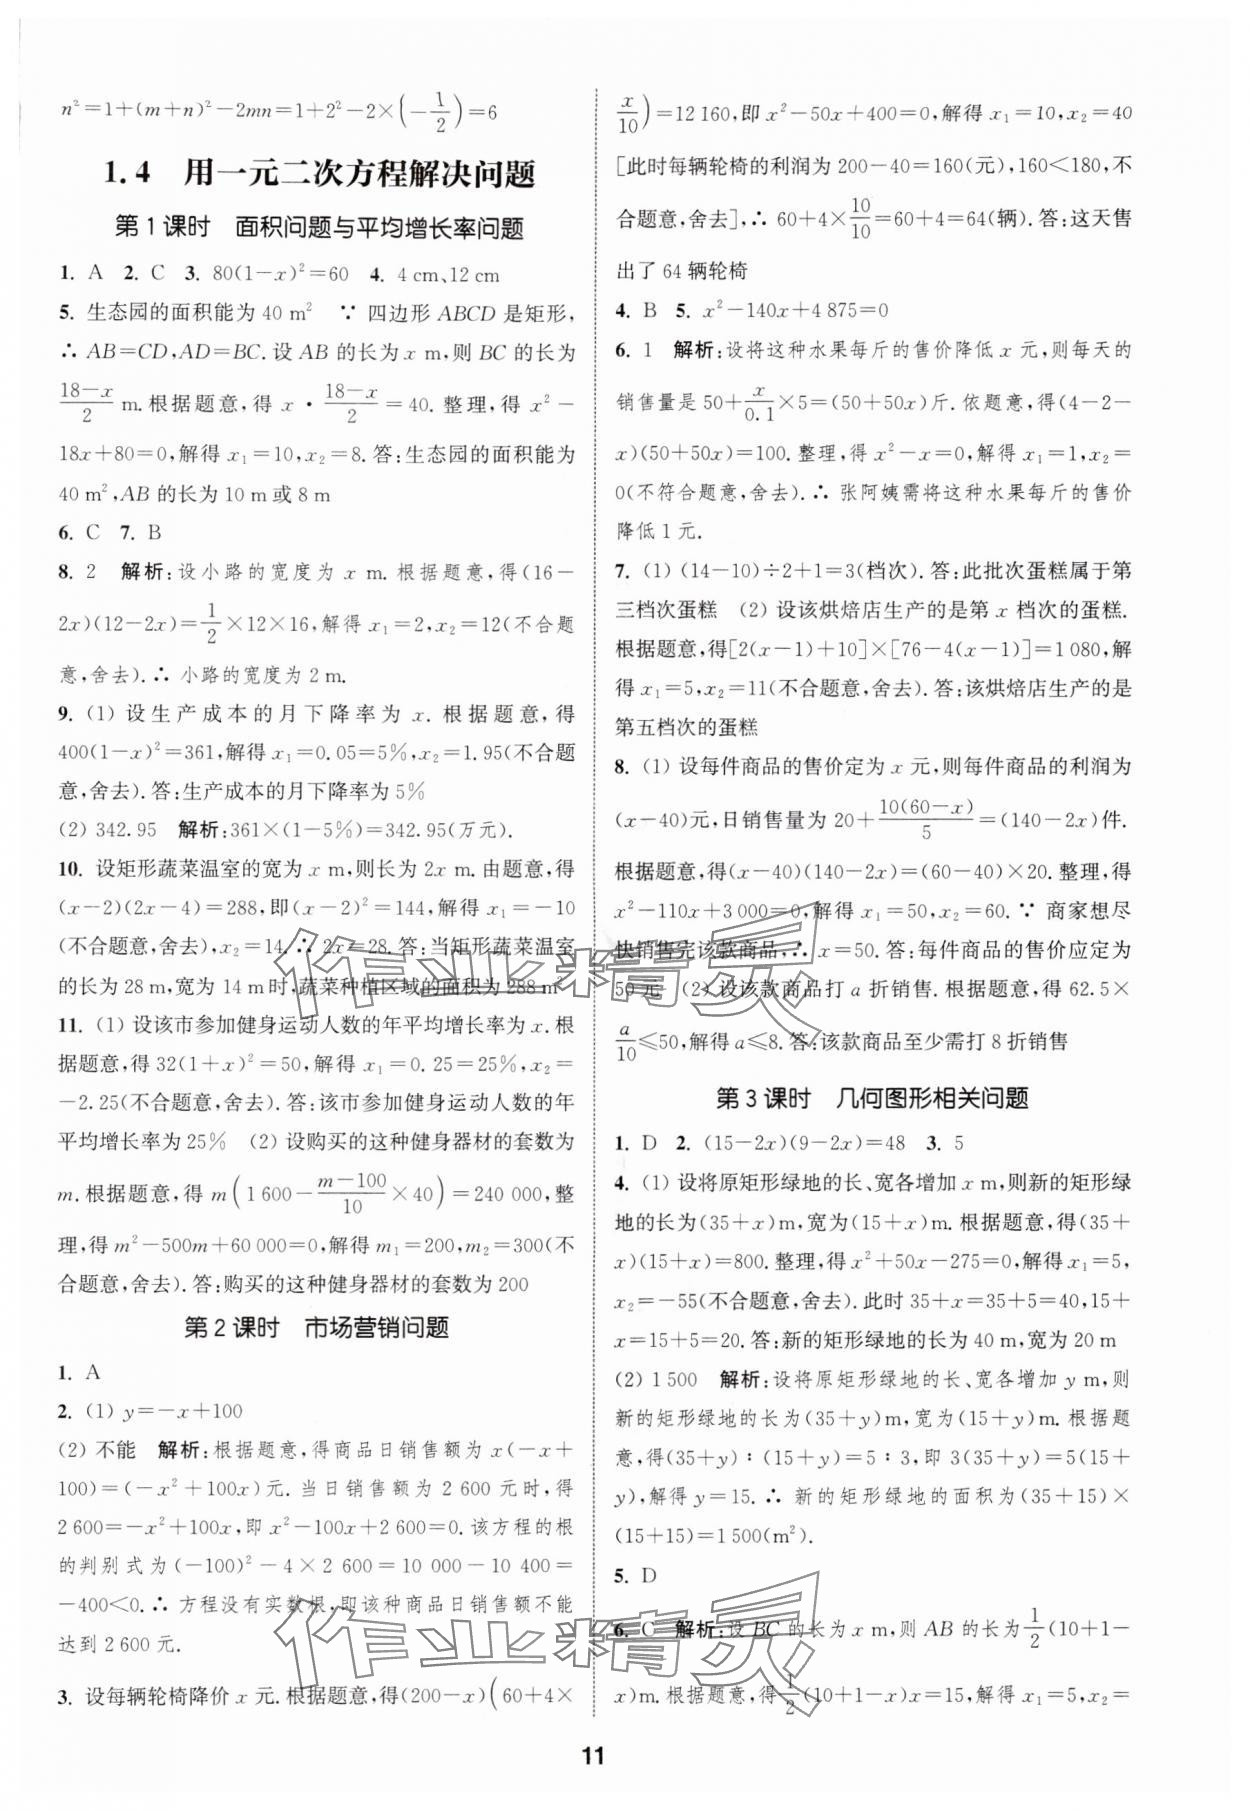 n²=1+(m+n)²-2mn=1+2²-2×(-1/2)=6
1.4 用一元二次方程解决问题
第1课时 面积问题与平均增长率问题
1. A 2. C 3. 80(1-x)²=60 4. 4 cm、12 cm
5. 生态园的面积能为 40 m² ∵ 四边形 ABCD 是矩形,
∴ AB=CD,AD=BC.设 AB 的长为 x m,则 BC 的长为
(18-x)/2 m.根据题意,得 x·(18-x)/2=40.整理,得 x²-
18x+80=0,解得 x₁=10,x₂=8.答:生态园的面积能为
40 m²,AB 的长为 10 m 或 8 m
6. C 7. B
8. 2 解析:设小路的宽度为 x m.根据题意,得(16-
2x)(12-2x)=1/2×12×16,解得 x₁=2,x₂=12(不合题
意,舍去).∴ 小路的宽度为 2 m.
9. (1) 设生产成本的月下降率为 x.根据题意,得
400(1-x)²=361,解得 x₁=0.05=5%,x₂=1.95(不合题
意,舍去).答:生产成本的月下降率为 5%
(2) 342.95 解析:361×(1-5%)=342.95(万元).
10. 设矩形蔬菜温室的宽为 x m,则长为 2x m.由题意,得
(x-2)(2x-4)=288,即(x-2)²=144,解得 x₁=-10
(不合题意,舍去),x₂=14.∴ 2x=28.答:当矩形蔬菜温室
的长为 28 m,宽为 14 m 时,蔬菜种植区域的面积为 288 m²
11. (1) 设该市参加健身运动人数的年平均增长率为 x.根
据题意,得 32(1+x)²=50,解得 x₁=0.25=25%,x₂=
-2.25(不合题意,舍去).答:该市参加健身运动人数的年
平均增长率为 25% (2) 设购买的这种健身器材的套数为
m.根据题意,得 m(1 600-(m-100)/10×40)=240 000,整
理,得 m²-500m+60 000=0,解得 m₁=200,m₂=300(不
合题意,舍去).答:购买的这种健身器材的套数为 200
第2课时 市场营销问题
1. A
2. (1) y=-x+100
(2) 不能 解析:根据题意,得商品日销售额为 x(-x+
100)=(-x²+100x)元.当日销售额为 2 600 元时,得
2 600=-x²+100x,即 x²-100x+2 600=0.该方程的根
的判别式为(-100)²-4×2 600=10 000-10 400=
-400<0.∴ 方程没有实数根,即该种商品日销售额不能
达到 2 600 元.
3. 设每辆轮椅降价 x 元.根据题意,得(200-x)(60+4×
x/10)=12 160,即 x²-50x+400=0,解得 x₁=10,x₂=40
[此时每辆轮椅的利润为 200-40=160(元),160<180,不
合题意,舍去],∴ 60+4×10/10=60+4=64(辆).答:这天售
出了 64 辆轮椅
4. B 5. x²-140x+4 875=0
6. 1 解析:设将这种水果每斤的售价降低 x 元,则每天的
销售量是 50+x/0.1×5=(50+50x)斤.依题意,得(4-2-
x)(50+50x)=100.整理,得 x²-x=0,解得 x₁=1,x₂=
0(不符合题意,舍去).∴ 张阿姨需将这种水果每斤的售价
降低 1 元.
7. (1) (14-10)÷2+1=3(档次).答:此批次蛋糕属于第
三档次蛋糕 (2) 设该烘焙店生产的是第 x 档次的蛋糕.
根据题意,得[2(x-1)+10]×[76-4(x-1)]=1 080,解
得 x₁=5,x₂=11(不合题意,舍去).答:该烘焙店生产的是
第五档次的蛋糕
8. (1) 设每件商品的售价定为 x 元,则每件商品的利润为
(x-40)元,日销售量为 20+10(60-x)/5=(140-2x)件.
根据题意,得(x-40)(140-2x)=(60-40)×20.整理,得
x²-110x+3 000=0,解得 x₁=50,x₂=60.∵ 商家想尽
快销售完该款商品,∴ x=50.答:每件商品的售价应定为
50 元 (2) 设该款商品打 a 折销售.根据题意,得 62.5×
a/10≤50,解得 a≤8.答:该款商品至少需打 8 折销售
第3课时 几何图形相关问题
1. D 2. (15-2x)(9-2x)=48 3. 5
4. (1) 设将原矩形绿地的长、宽各增加 x m,则新的矩形绿
地的长为(35+x)m,宽为(15+x)m.根据题意,得(35+
x)(15+x)=800.整理,得 x²+50x-275=0,解得 x₁=5,
x₂=-55(不合题意,舍去).此时 35+x=35+5=40,15+
x=15+5=20.答:新的矩形绿地的长为 40 m,宽为 20 m
(2) 1 500 解析:设将原矩形绿地的长、宽各增加 y m,则
新的矩形绿地的长为(35+y)m,宽为(15+y)m.根据题
意,得(35+y)∶(15+y)=5∶3,即 3(35+y)=5(15+
y),解得 y=15.∴ 新的矩形绿地的面积为(35+15)×
(15+15)=1 500(m²).
5. D
6. C 解析:设 BC 的长为 x m,则 AB 的长为1/2(10+1-
x)m.根据题意,得1/2(10+1-x)x=15,解得 x₁=5,x₂=
11
作业精灵
作业精灵